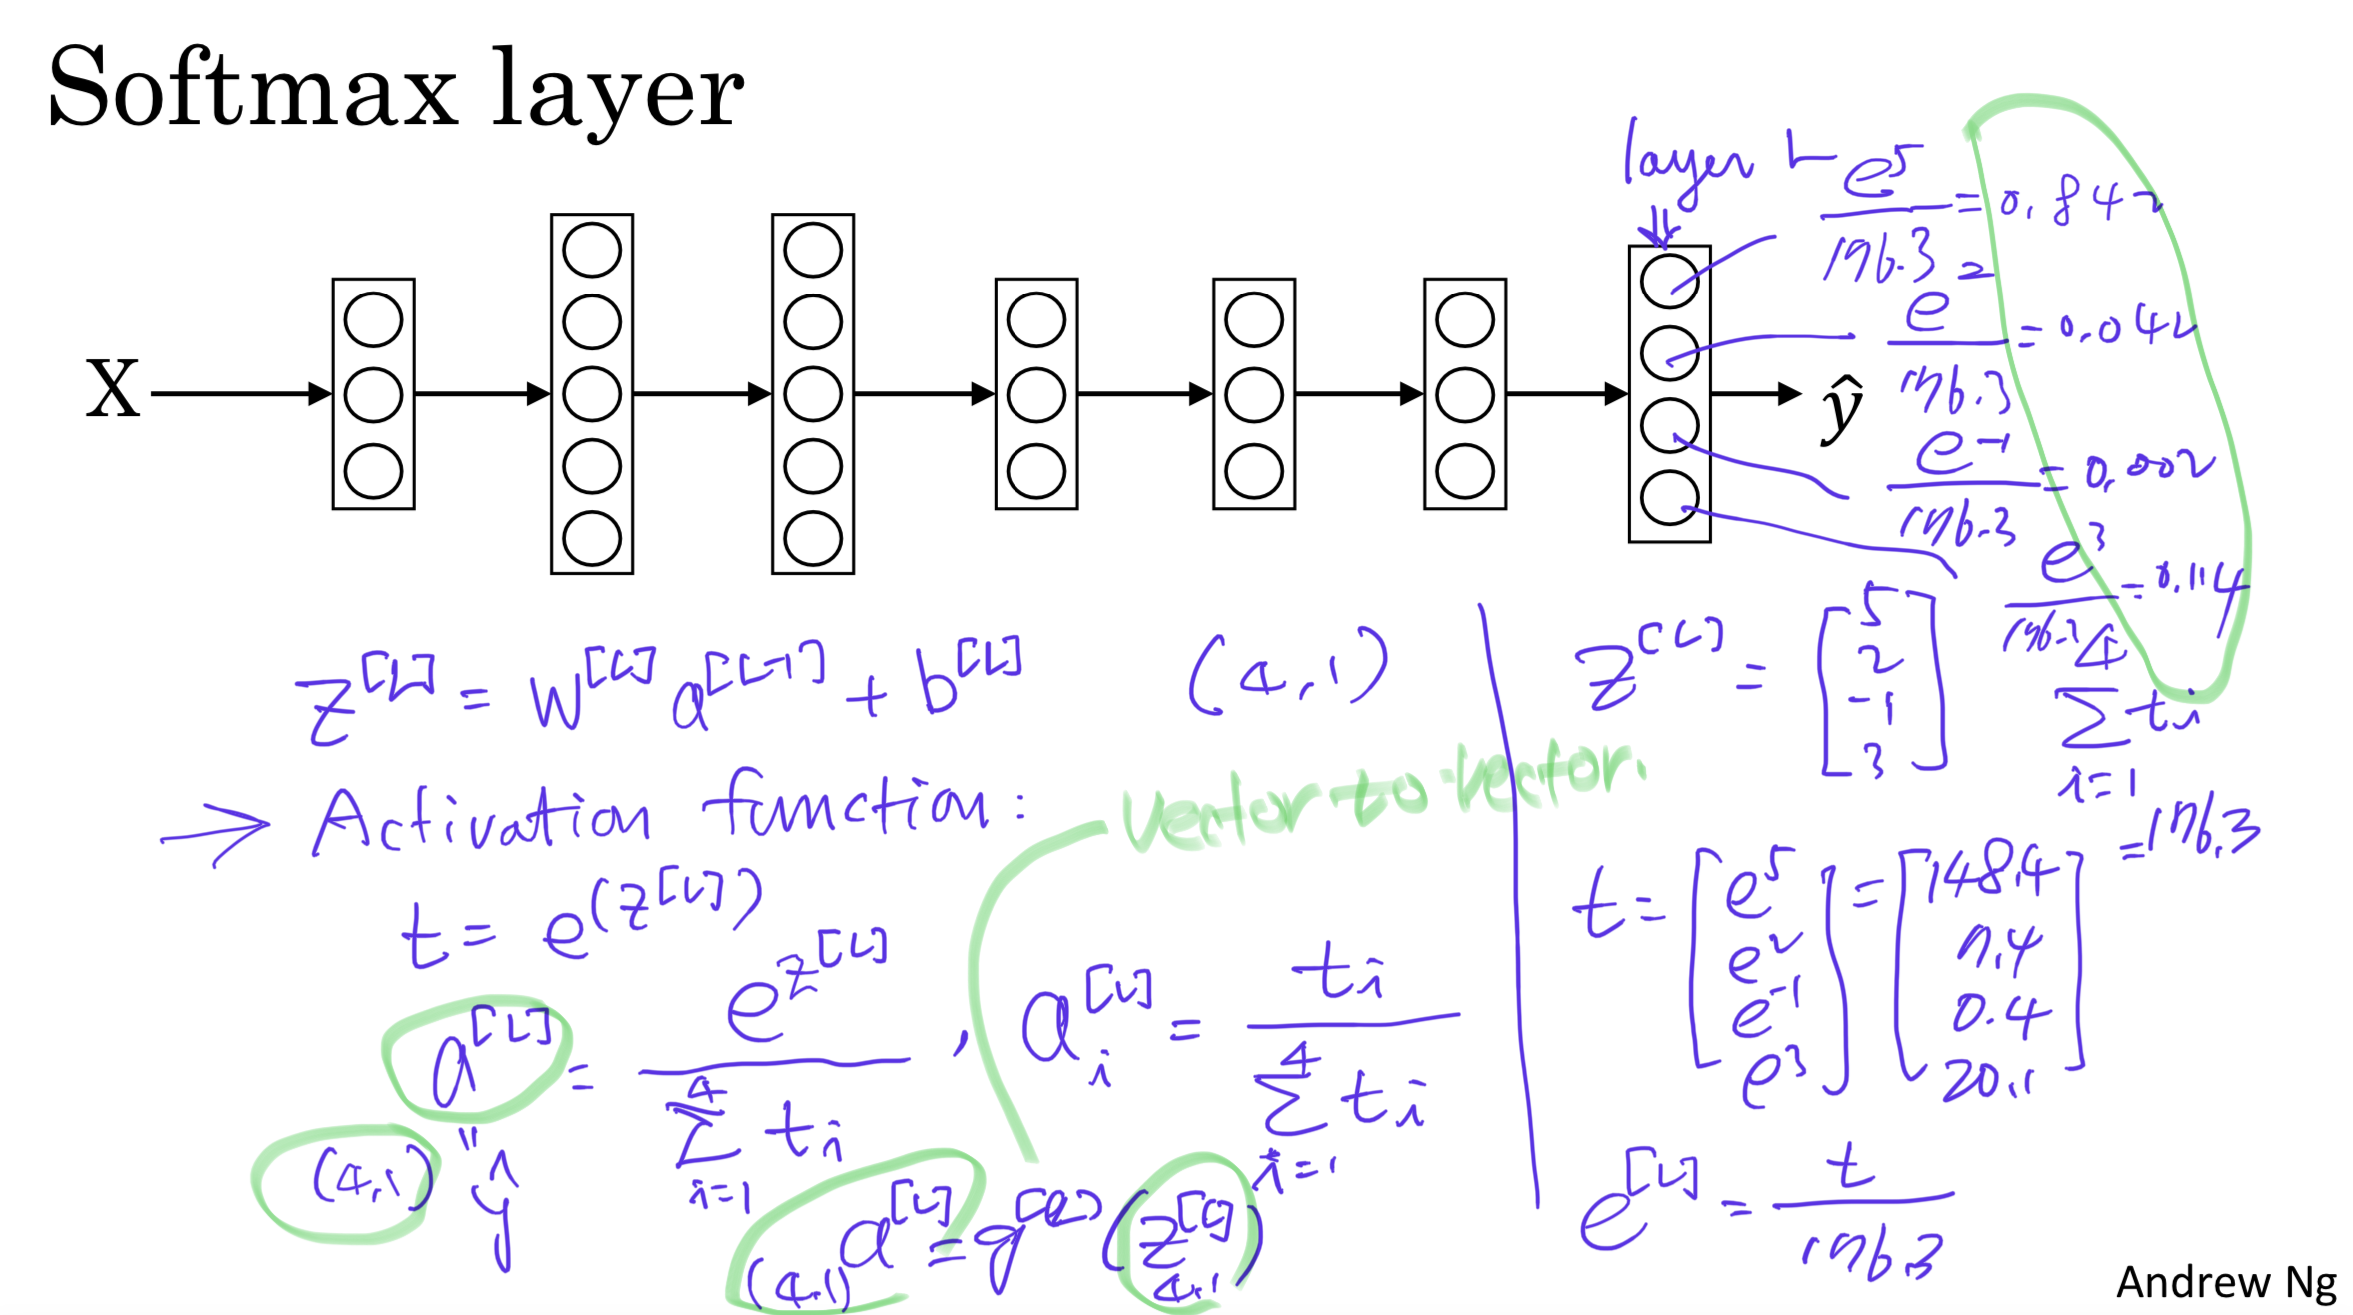 Softmax layer
layer L
X
ŷ
e^5 / 176.3 = 0.842
e^2 / 176.3 = 0.042
e^-1 / 176.3 = 0.002
e^3 / 176.3 = 0.114
z^[L] = W^[L] a^[L-1] + b^[L] (4,1)
Activation function:
vector-to-vector.
t = e^(z^[L])
a^[L] = e^z^[L] / Σ_{i=1}^{4} t_i , a_i^[L] = t_i / Σ_{i=1}^{4} t_i
(4,1) " ŷ
a^[L] = g^[L] (z^[L])
(4,1) 4,1
z^[L] = [5 2 -1 3]
Σ_{i=1}^{4} t_i = 176.3
t = [e^5 e^2 e^-1 e^3] = [148.4 7.4 0.4 20.1]
e^[L] = t / 176.3
Andrew Ng